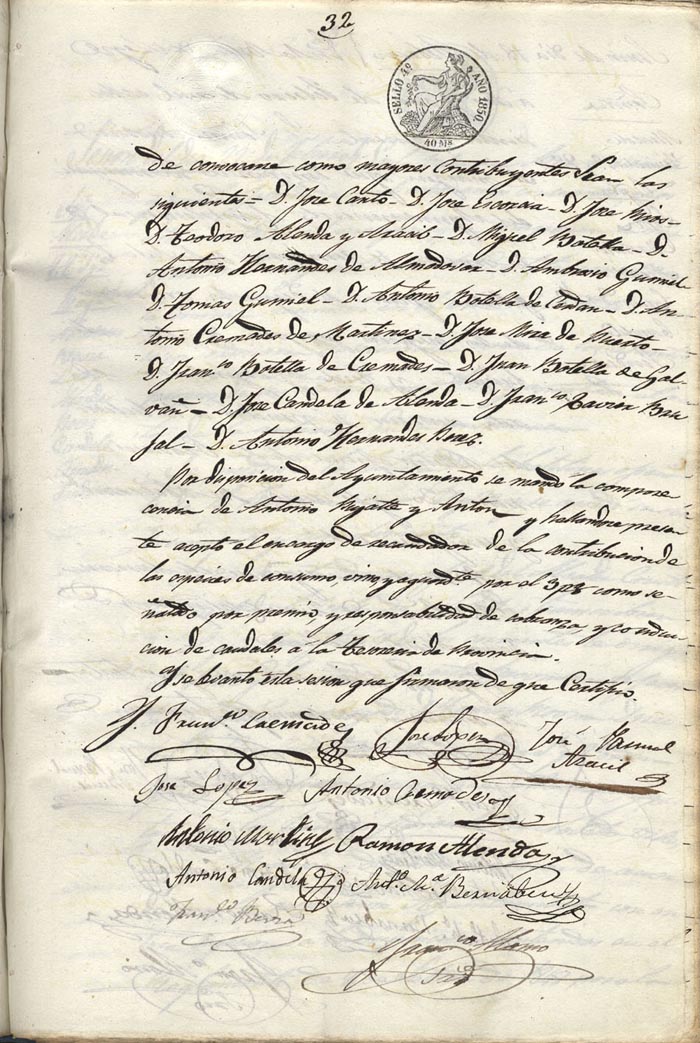 32
SELLO 4º AÑO 1850.
40 Ms
de convocarse como mayores Contribuyentes Sean los
siguientes – D. Jose Canto – D. Jose Escorcia – D. Jose Rios –
D. Teodoro Alenda y Aracil – D. Miguel Botella – D.
Antonio Hernandes de Almodovar – D. Ambrosio Gumiel
D. Tomas Gumiel – D. Antonio Botella de Cerdan – D. An
tonio Cremades de Martinez – D. Jose Mira de Puerto –
D. Franco Botella de Cremades – D. Juan Botella de Gal
vañ – D. Jose Candela de Alenda – D. Franco Xavier
– D. Antonio Hernandes Perez.
Por disposicion del Ayuntamiento se mandó la compare
cencia de Antonio y Anton y hallandose presen
te acepto el encargo de recaudador de la contribucion de
las especies de consumo, vino y aguardte por el 3 p% como se
ñalado por premio, y responsabilidad de cobranza y conduc
cion de caudales à la Tesoreria de Provincia.
Y se levantó esta sesion que firmaron de que Certifico.
Franco
Jose Lopez
José Pascual
Aracil
Jose Lopez
Antonio Cremades
Antonio Martinez
Ramon Alenda
Antonio Candela
Anto Ma Bernabeu
Franco
Srio